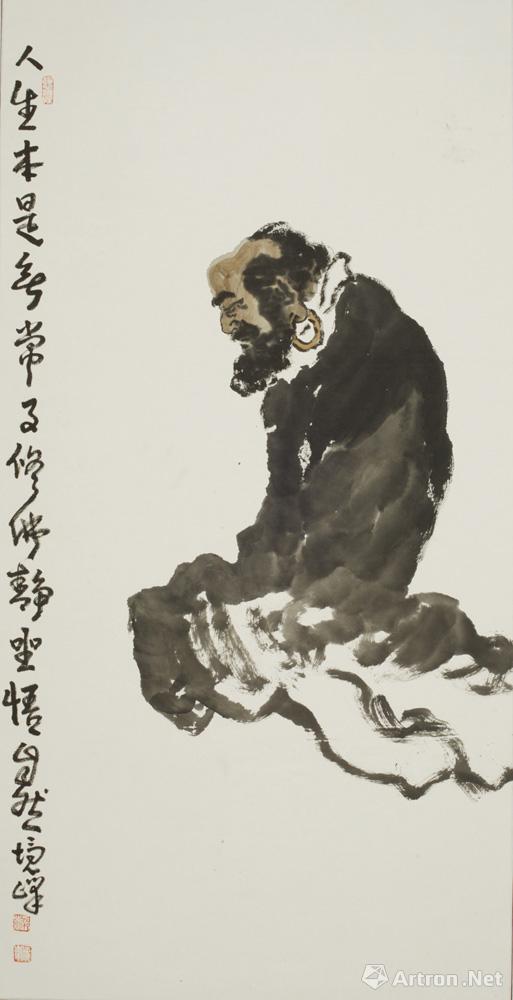 人生本是無常事修佛静坐悟自然境
Artron.Net